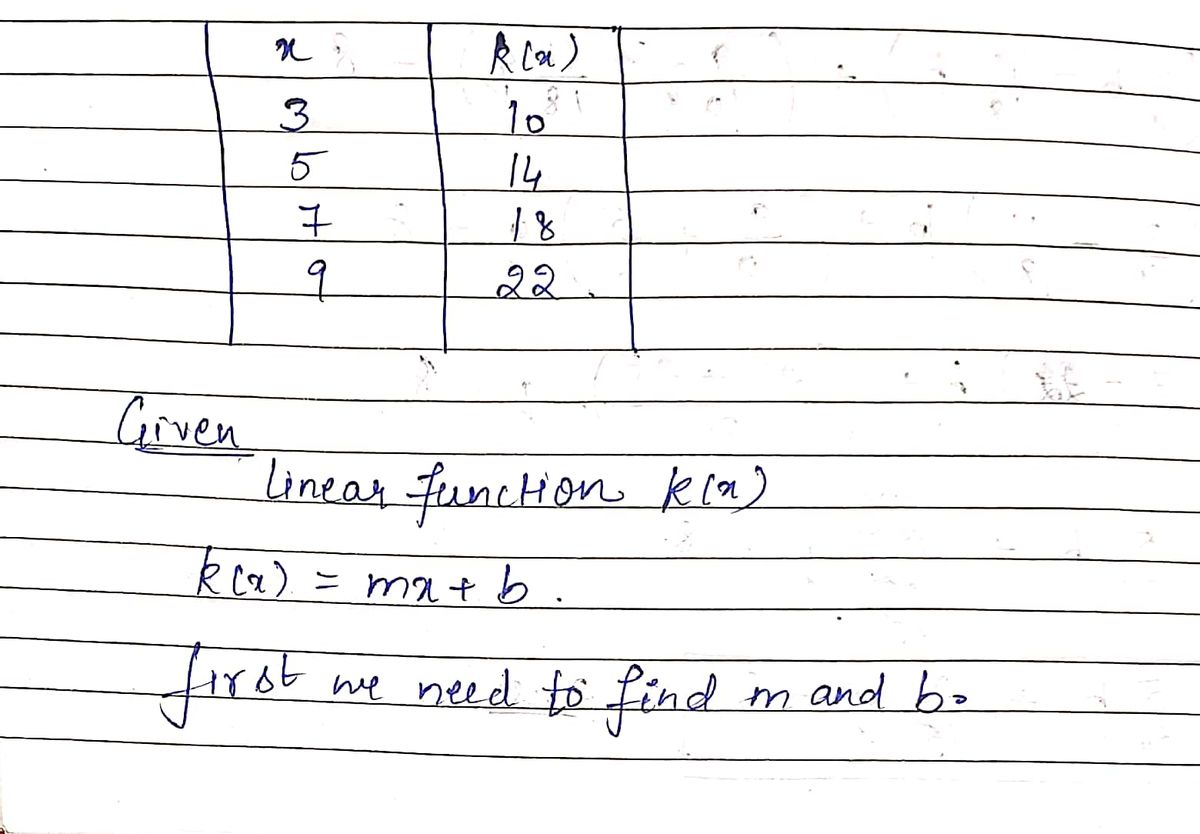 x k(x)
3 10
5 14
7 18
9 22
Given
Linear function k(x)
k(x) = mx + b.
first we need to find m and b.